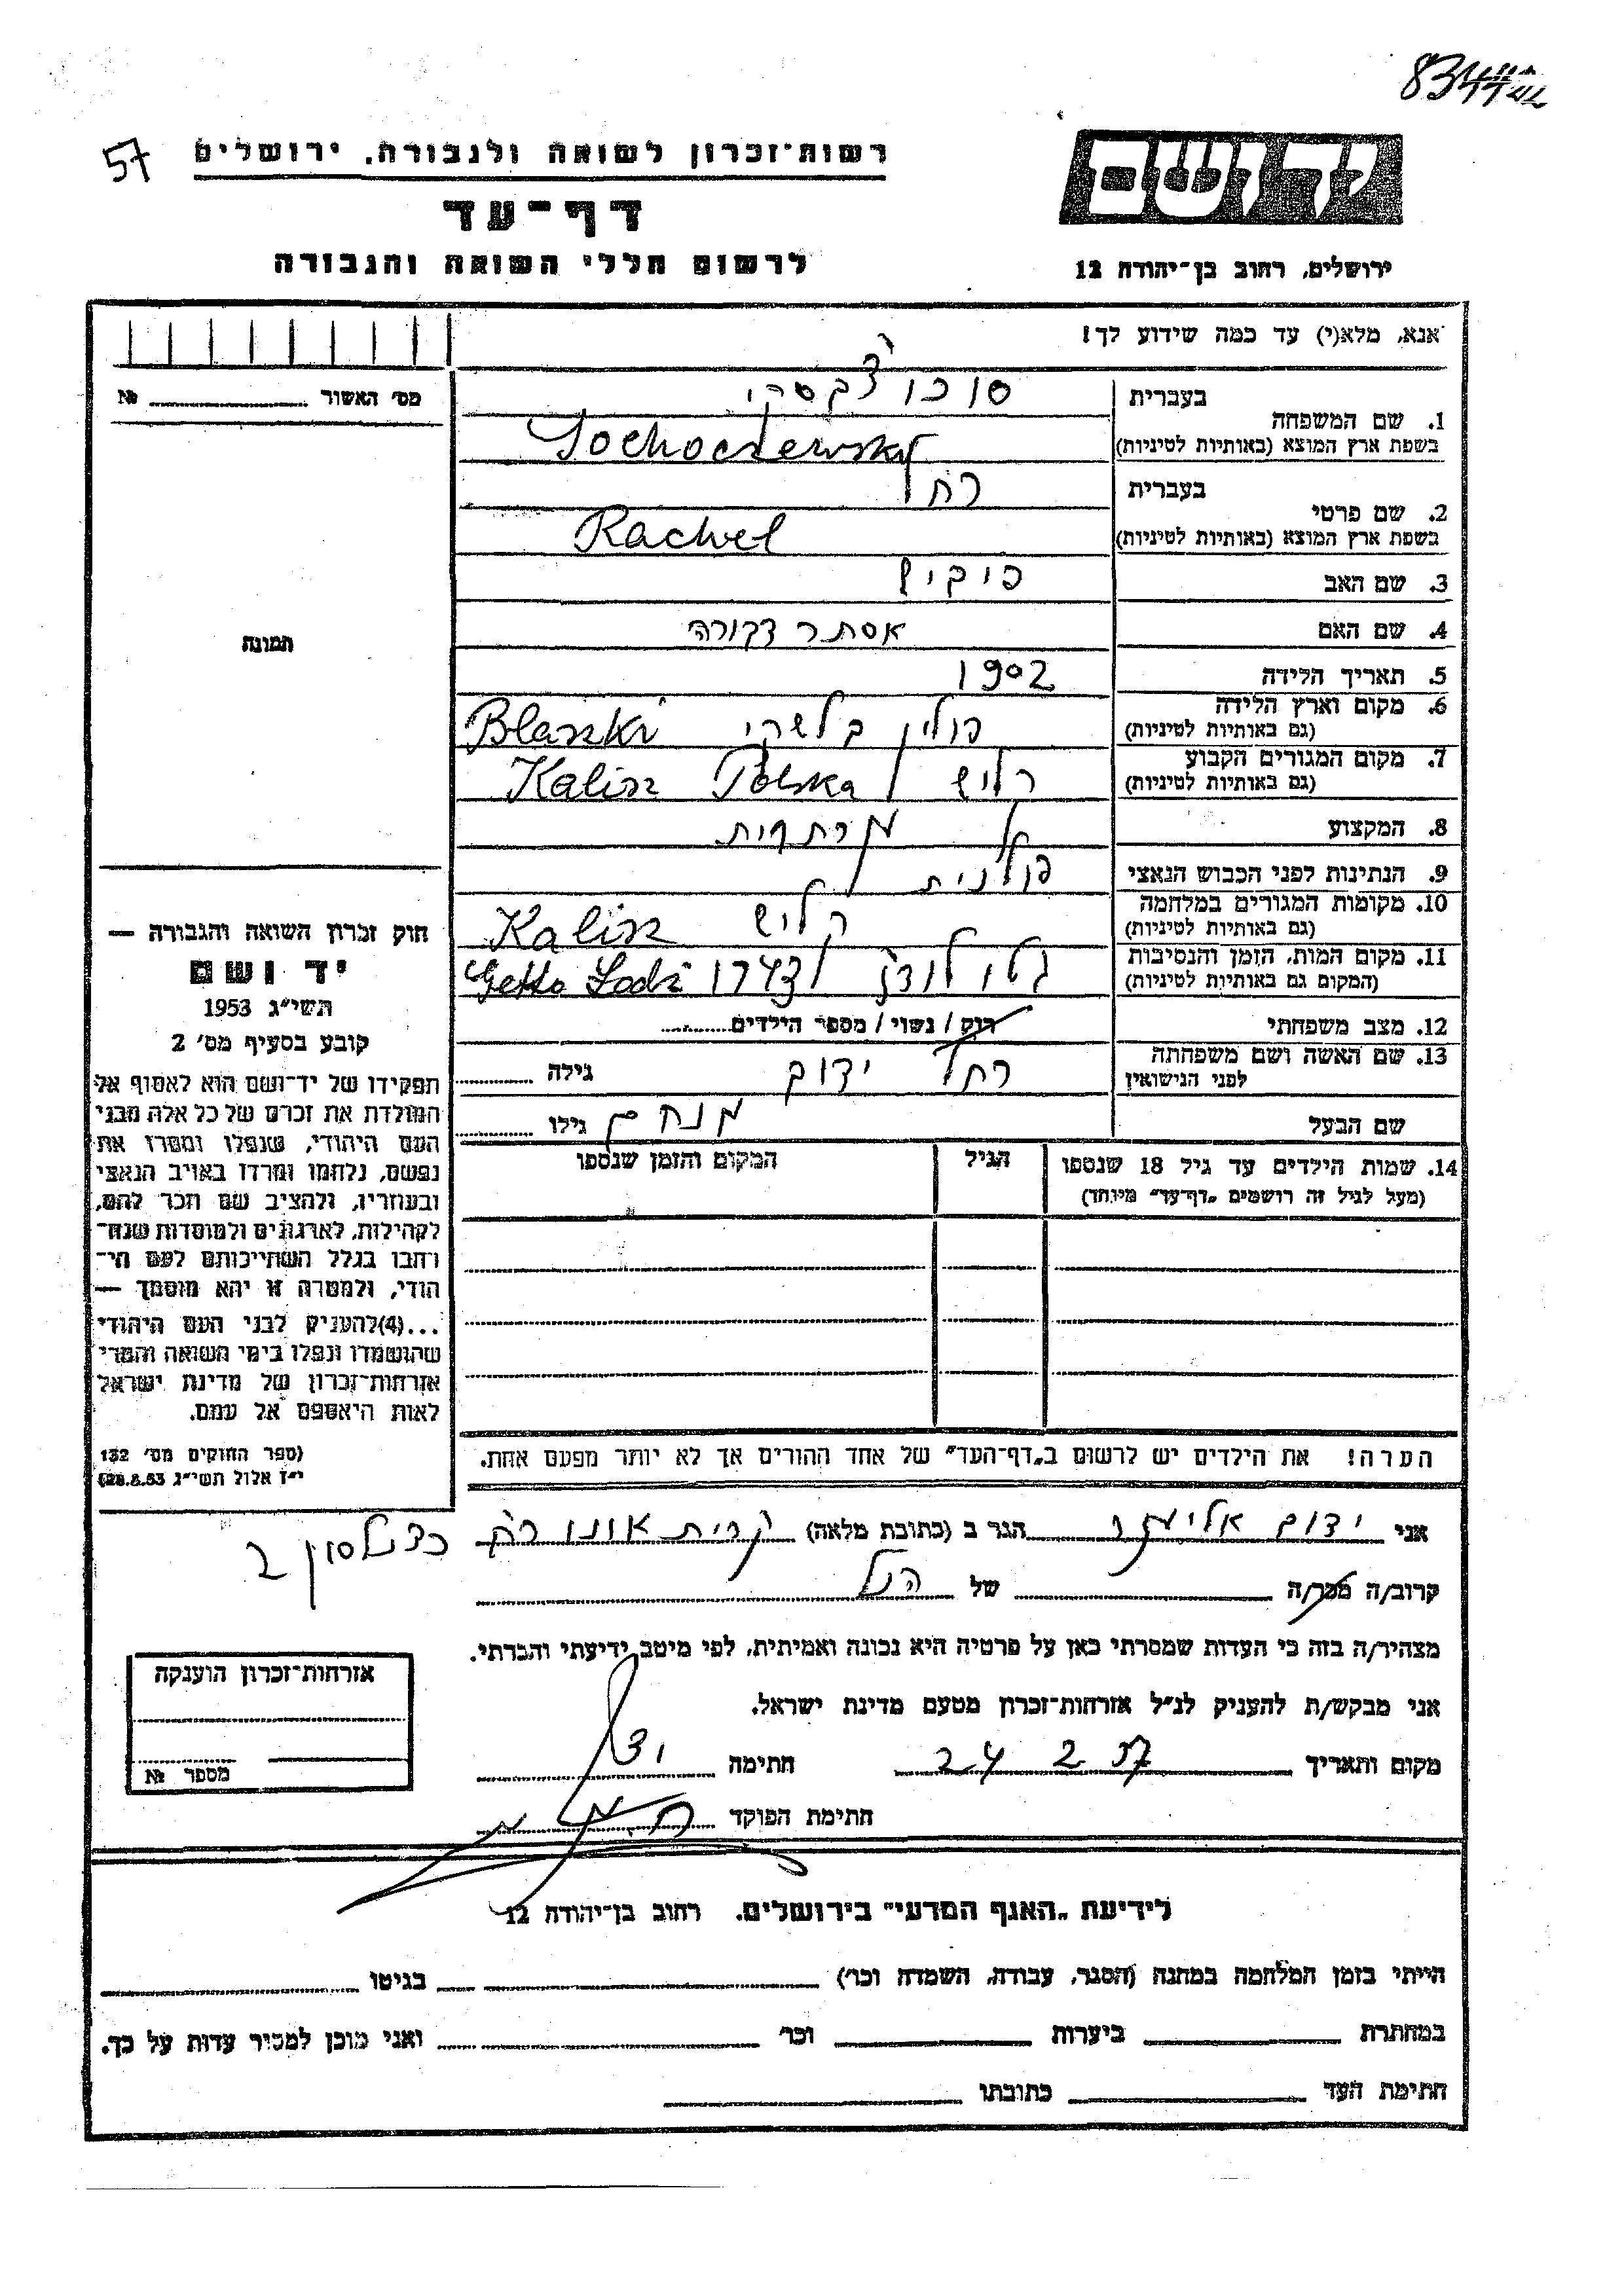 83444
57
רשות־זכרון לשואה ולגבורה. ירושלים
דף־עד
לרשום חללי השואה והגבורה
יד ושם
ירושלים, רחוב בן־יהודה 12
אנא, מלא(י) עד כמה שידוע לך!
מס' האשור № 
1. שם המשפחה
בעברית סוכוצ'בסקי
בשפת ארץ המוצא (באותיות לטיניות) Sochoczewsky
2. שם פרטי
בעברית רחל
בשפת ארץ המוצא (באותיות לטיניות) Rachel
3. שם האב פיביש
4. שם האם אסתר דבורה
5. תאריך הלידה 1902
6. מקום וארץ הלידה פולין בלשקי Blaszki
(גם באותיות לטיניות)
7. מקום המגורים הקבוע קליש Kalisz Polska
(גם באותיות לטיניות)
8. המקצוע
9. הנתינות לפני הכבוש הנאצי פולנית
10. מקומות המגורים במלחמה קליש Kalisz
(גם באותיות לטיניות)
11. מקום המות, הזמן והנסיבות גטו לודז' 1943 Getto Lodz
(המקום גם באותיות לטיניות)
12. מצב משפחתי רווק / נשוי / מספר הילדים
13. שם האשה ושם משפחתה רחל גילה
לפני הנישואין
שם הבעל מנחם גילו
14. שמות הילדים עד גיל 18 שנספו הגיל המקום והזמן שנספו
(מעל לגיל זה רושמים „דף־עד" מיוחד)
הערה! את הילדים יש לרשום ב„דף־העד" של אחד ההורים אך לא יותר מפעם אחת.
תמונה
חוק זכרון השואה והגבורה —
יד ושם
תשי"ג 1953
קובע בסעיף מס' 2
תפקידו של יד־ושם הוא לאסוף אל
המולדת את זכרם של כל אלה מבני
העם היהודי, שנפלו ומסרו את
נפשם, נלחמו ומרדו באויב הנאצי
ובעוזריו, ולהציב שם וזכר להם,
לקהילות, לארגונים ולמוסדות שנח־
רבו בגלל השתייכותם לעם הי־
הודי, ולמטרה זו יהא מוסמך —
...(4)להעניק לבני העם היהודי
שהושמדו ונפלו בימי השואה והמרי
אזרחות־זכרון של מדינת ישראל
לאות היאספם אל עמם.
(ספר החוקים מס' 132
י"ז אלול תשי"ג 28.8.53)
אני אליעזר הגר ב (כתובת מלאה) קרית אונו רח כצנלסון 2
קרוב/ה מכר/ה של הנ"ל
מצהיר/ה בזה כי העדות שמסרתי כאן על פרטיה היא נכונה ואמיתית, לפי מיטב ידיעתי והכרתי.
אני מבקש/ת להעניק לנ"ל אזרחות־זכרון מטעם מדינת ישראל.
מקום ותאריך 24 2 57 חתימה
חתימת הפוקד
אזרחות־זכרון הוענקה
מספר №
לידיעת „האגף המדעי" בירושלים. רחוב בן־יהודה 12
הייתי בזמן המלחמה במחנה (הסגר, עבודה, השמדה וכו') בגיטו
במחתרת ביערות וכו' ואני מוכן למסור עדות על כך.
חתימת העד כתובתו